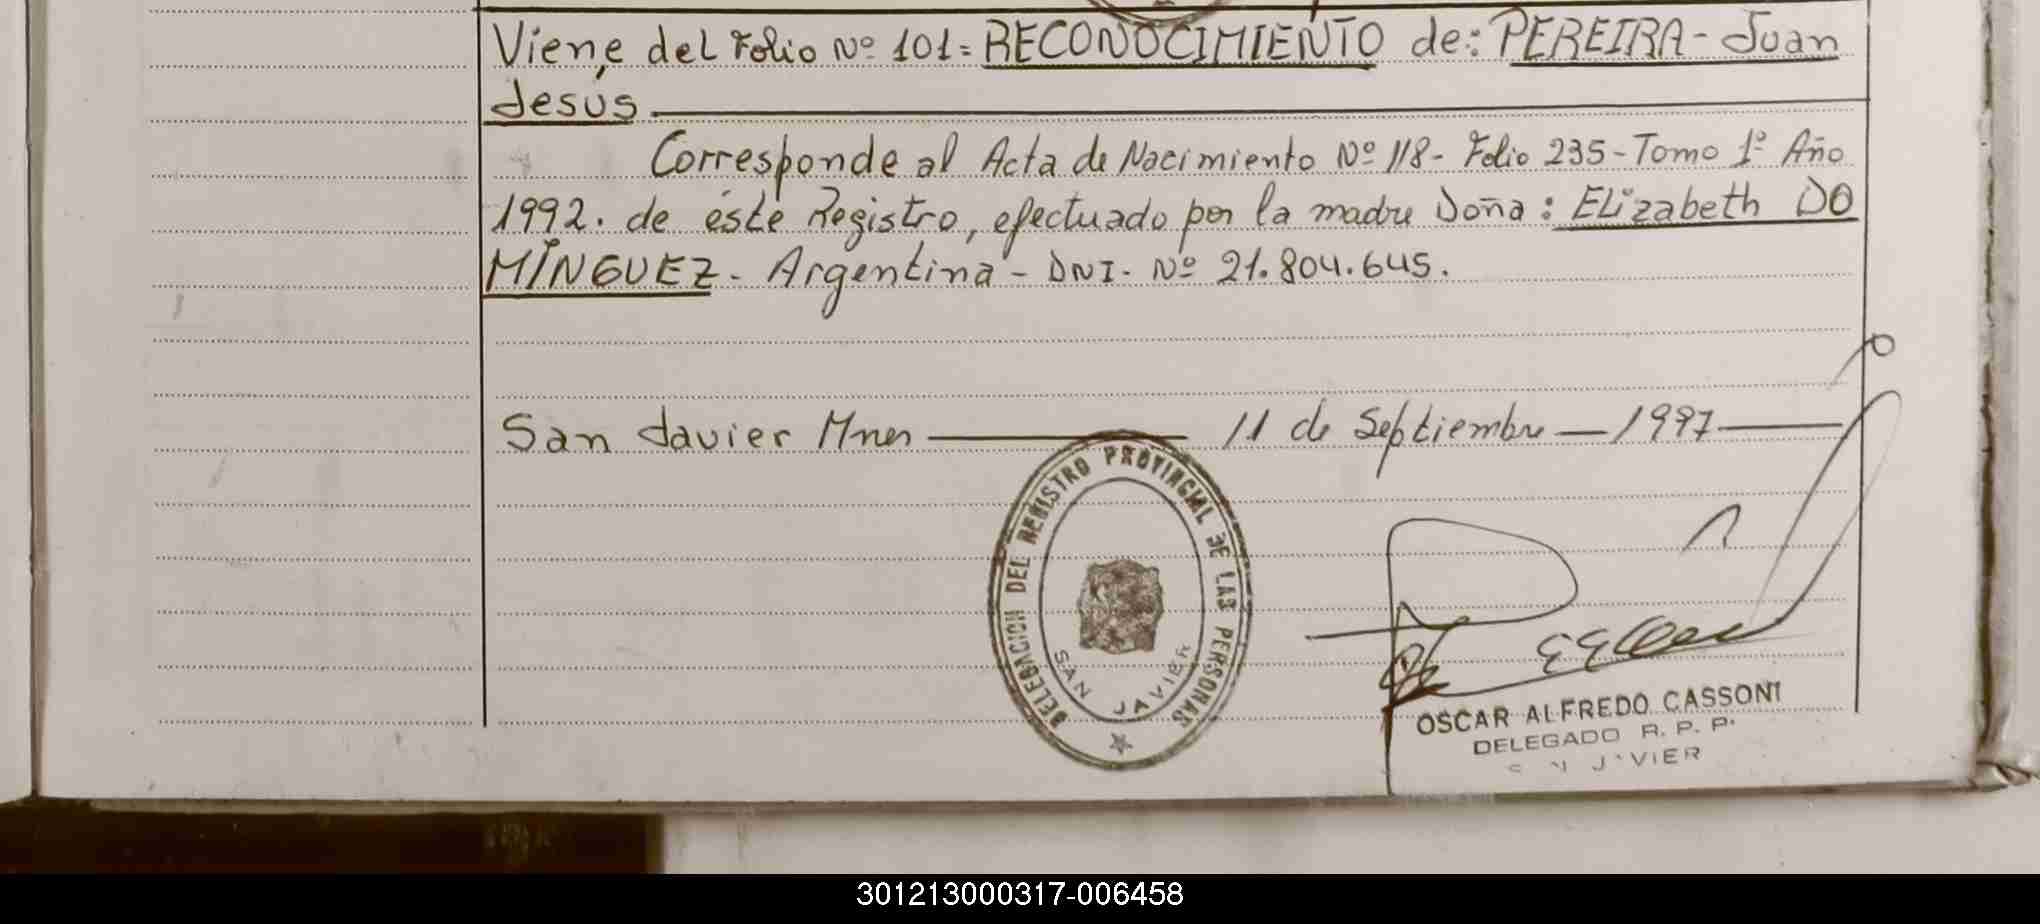 Viene del Folio Nº 101 = RECONOCIMIENTO de: PEREIRA - Juan
Jesús
Corresponde al Acta de Nacimiento Nº 118 - Folio 235 - Tomo 1º Año
1992. de éste Registro, efectuado por la madre Doña: Elizabeth DO
MÍNGUEZ - Argentina - DNI. Nº 21.804.645.
San Javier Mnes 11 de Septiembre - 1997
DELEGACION DEL REGISTRO PROVINCIAL DE LAS PERSONAS
SAN JAVIER
OSCAR ALFREDO CASSONI
DELEGADO R. P. P.
JAVIER
301213000317-006458